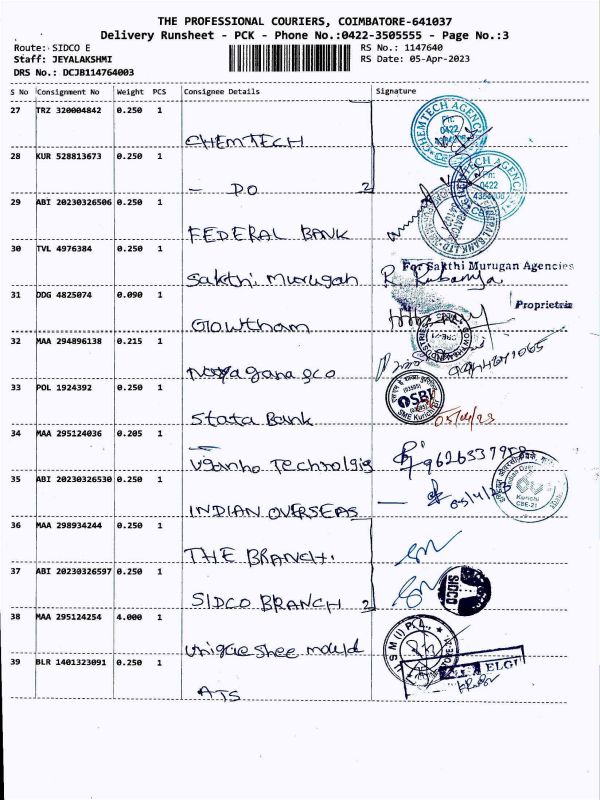 THE PROFESSIONAL COURIERS, COIMBATORE-641037
Delivery Runsheet - PCK - Phone No.:0422-3505555 - Page No.:3
Route: SIDCO E
RS No.: 1147640
Staff: JEYALAKSHMI
RS Date: 05-Apr-2023
DRS No.: DCJB114764003
S No Consignment No Weight PCS Consignee Details Signature
27 TRZ 320004842 0.250 1
CHEMTECH
CHEMTECH AGENC
Ph: 0422
28 KUR 528813673 0.250 1
- DO 2
CHEMTECH AGENCIES
Ph: 0422
29 ABI 20230326506 0.250 1
FEDERAL BANK
30 TVL 4976384 0.250 1
Sakthi Murugan
For Sakthi Murugan Agencies
31 DDG 4825074 0.090 1
Gowtham
Proprietrix
32 MAA 294896138 0.215 1
33 POL 1924392 0.250 1
Stata Bank
SBI
SME Kurichi
05/04/23
34 MAA 295124036 0.205 1
35 ABI 20230326530 0.250 1
INDIAN OVERSEAS
Kurichi
CBE-21
36 MAA 298934244 0.250 1
THE BRANCH.
37 ABI 20230326597 0.250 1
SIDCO BRANCH 2
SIDCO
38 MAA 295124254 4.000 1
unique shee mould
39 BLR 1401323091 0.250 1
ATS
ELGI